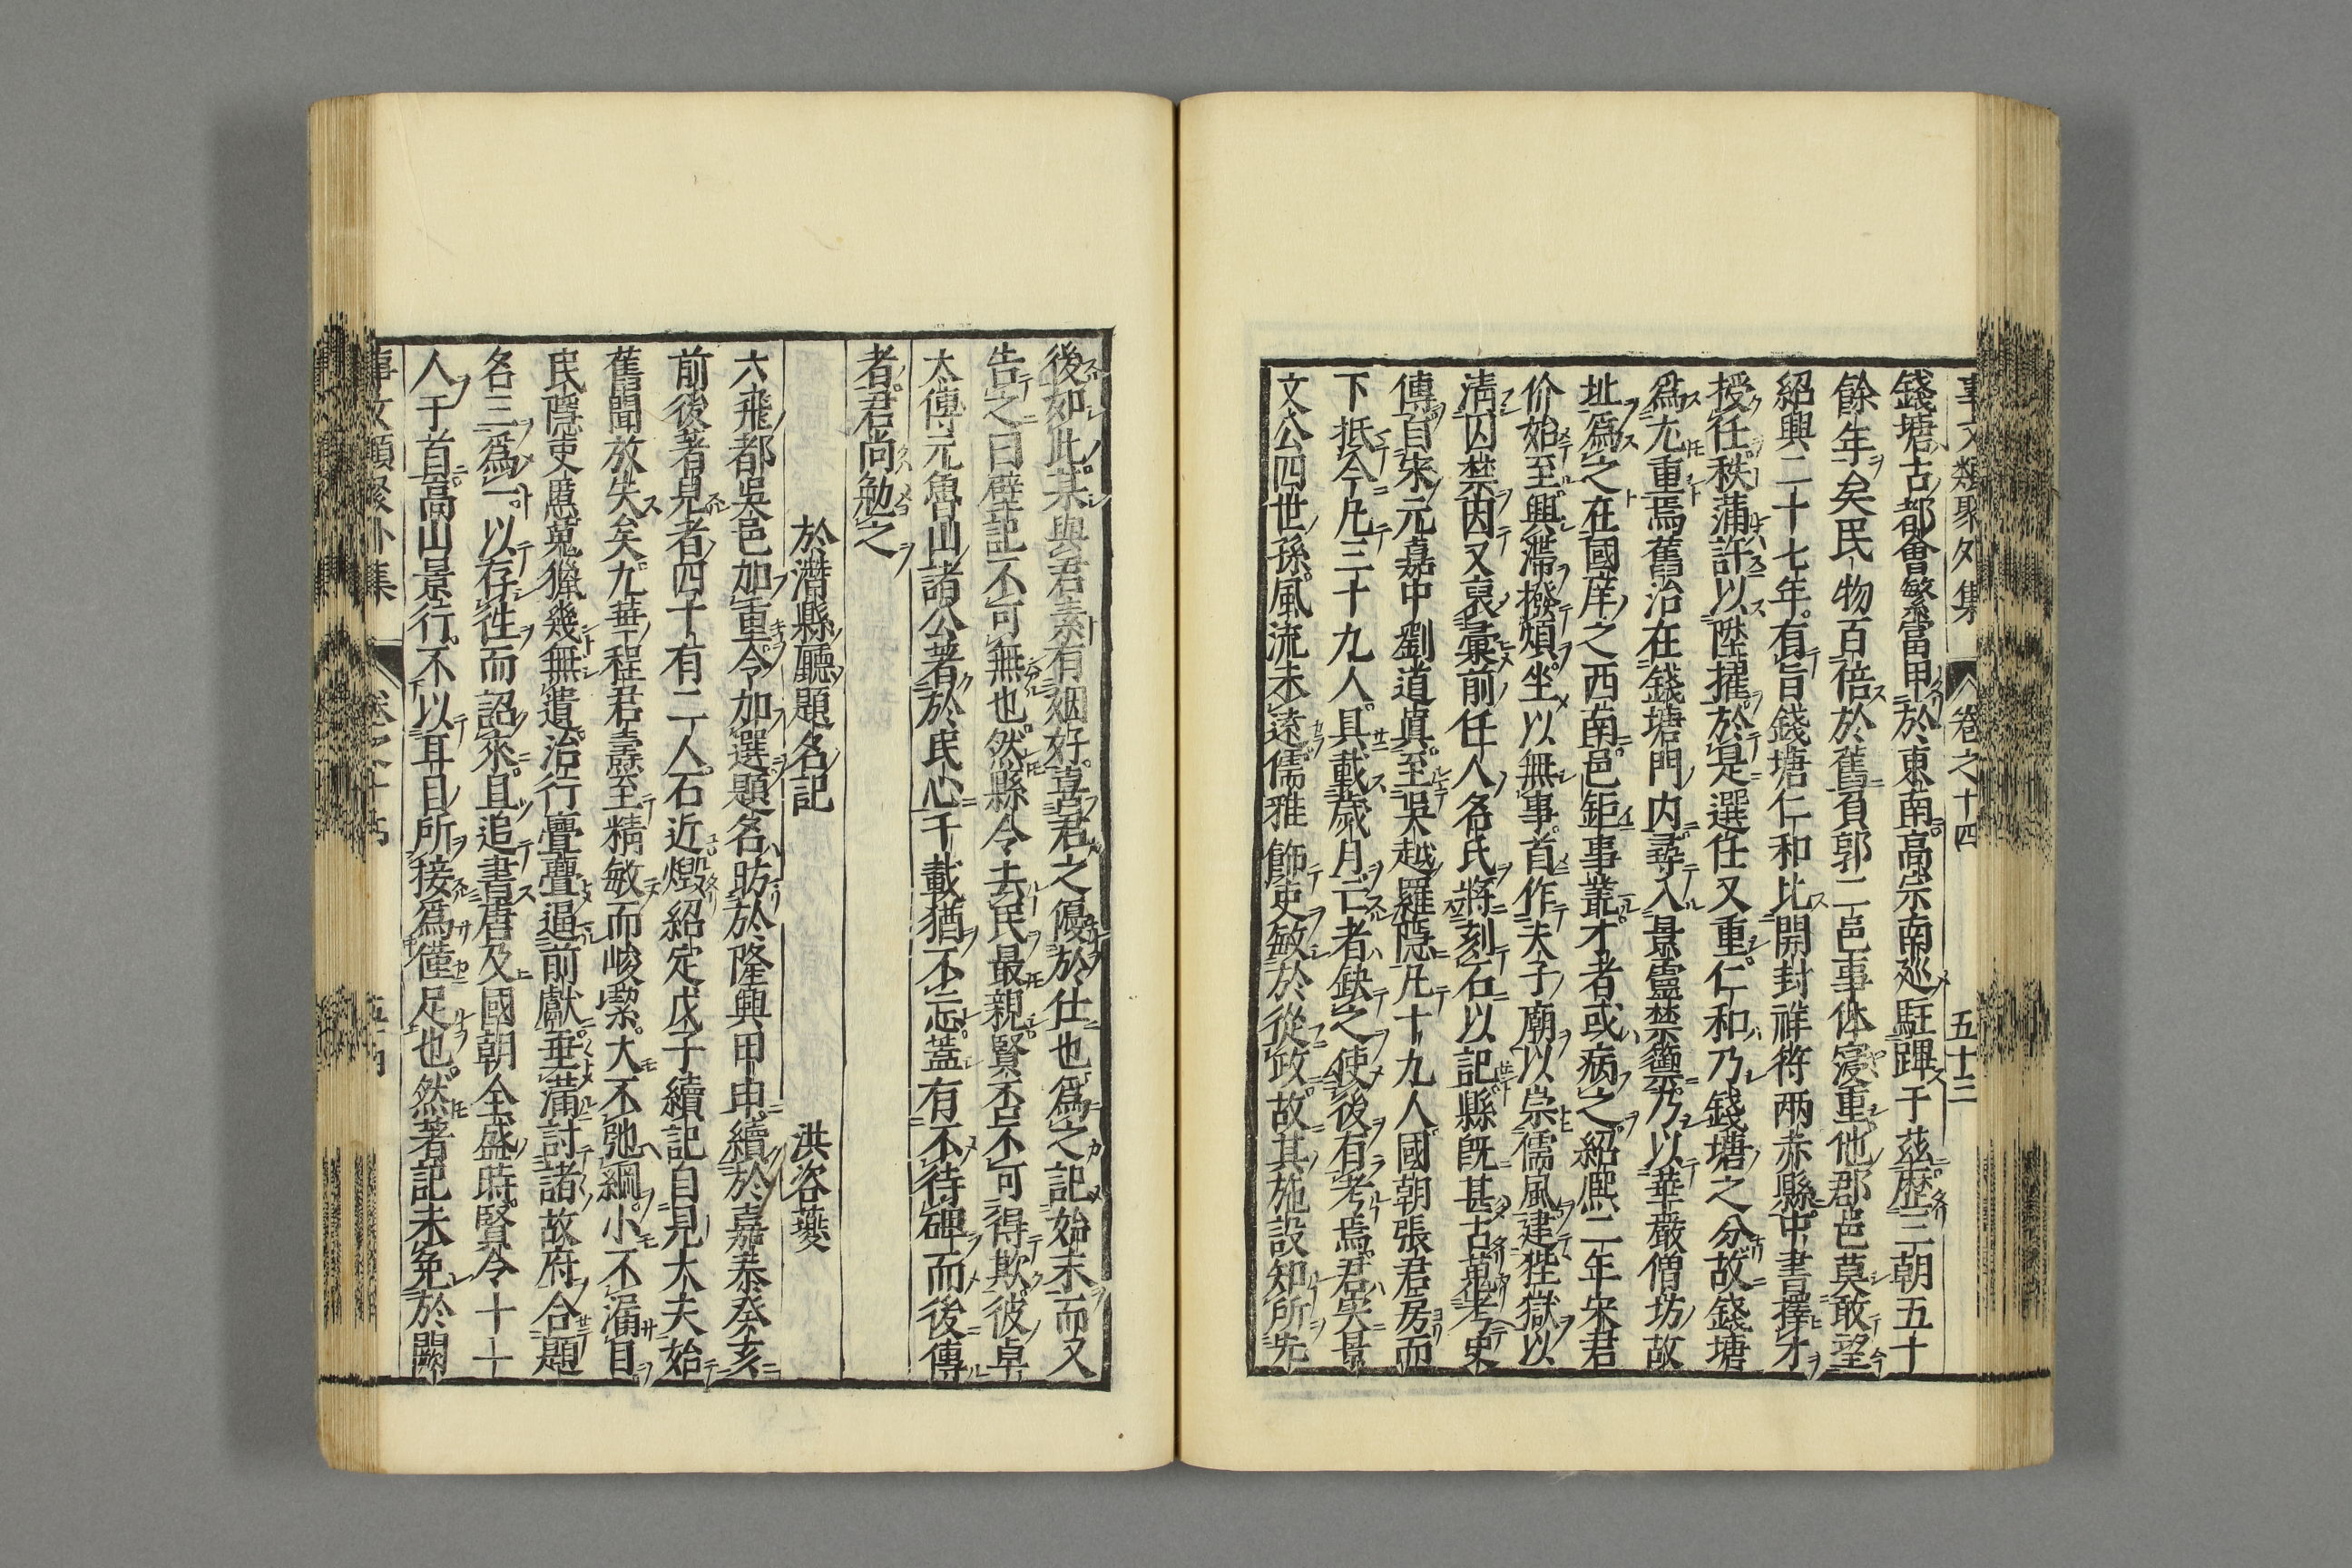 事文類聚外集 卷之十四 五十三
錢塘古都會繁富甲於東南高宗南巡駐蹕于茲歷三朝五十
餘年矣民物百倍於舊負郭二邑事体寖重他郡邑莫敢望
紹興二十七年有旨錢塘仁和比開封祥符兩赤縣中書擇才
授任秩蒲許以陞擢於是選任又重仁和乃錢塘之分故錢塘
爲尤重焉舊治在錢塘門内尋入景靈禁籞乃以華嚴僧坊故
址爲之在國庠之西南邑鉅事叢才者或病之紹熙二年宋君
价始至興滯撥煩坐以無事首作夫子廟以崇儒風建狴獄以
清囚禁因又裒彙前任人名氏將刻石以記縣旣甚古蒐考史
傳自宋元嘉中劉道眞至吳越羅隱凡十九人國朝張君房而
下抵今凡三十九人具載歲月亡者缺之使後有考焉君實景
文公四世孫風流未遠儒雅飾吏敏於從政故其施設知所先
後如此某與君素有姻好喜君之優於仕也爲之記始末而又
告之曰壁記不可無也然縣令去民最親賢否不可得欺彼卓
太傅元魯山諸公著於民心千載猶不忘蓋有不待碑而後傳
者君尚勉之
於潛縣廳題名記 洪咨夔
六飛都吳邑加重令加選題名昉於隆興甲申續於嘉泰癸亥
前後著見者四十有二人石近燬紹定戊子續記自見大夫始
舊聞放失矣九華程君壽至精敏而峻潔大不弛綱小不漏目
民隱吏慝蒐獮幾無遺治行亹亹逼前獻垂蒲討諸故府合題
名三爲一以存徃而詔來且追書唐及國朝全盛時賢令十十
人于首高山景行不以耳目所接爲僅足也然著記未免於闕
事文類聚外集 卷之十四